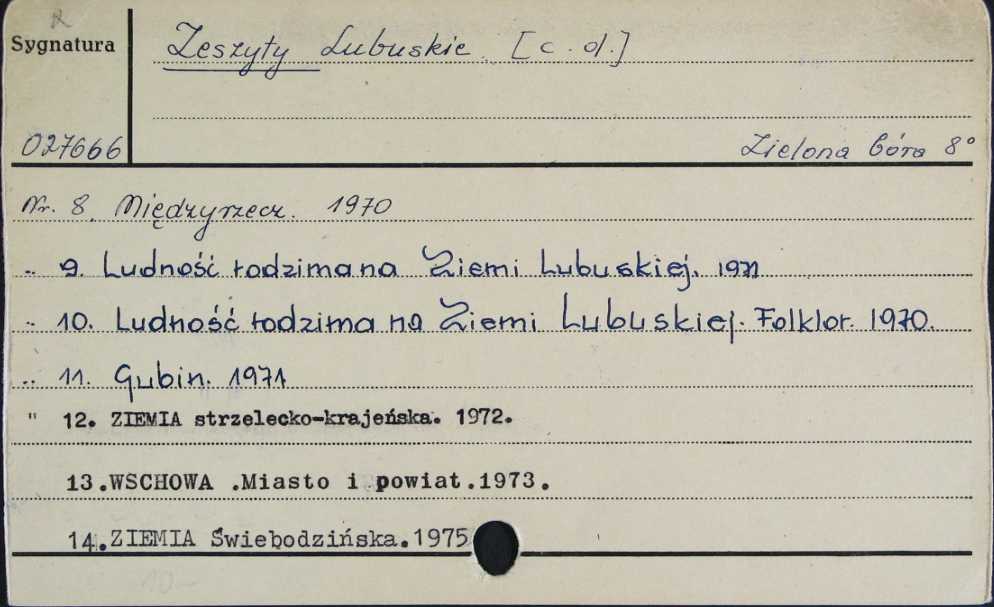 Sygnatura
Zeszyty Lubuskie [c.d.]
027666
Zielona Góra 8°
Nr. 8. Międzyrzecz. 1970
.. 9. Ludność rodzima na Ziemi Lubuskiej. 1971
.. 10. Ludność rodzima na Ziemi Lubuskiej. Folklor. 1970.
.. 11. Gubin. 1971
" 12. ZIEMIA strzelecko-krajeńska. 1972.
13.WSCHOWA .Miasto i powiat.1973.
14.ZIEMIA Świebodzińska.1975